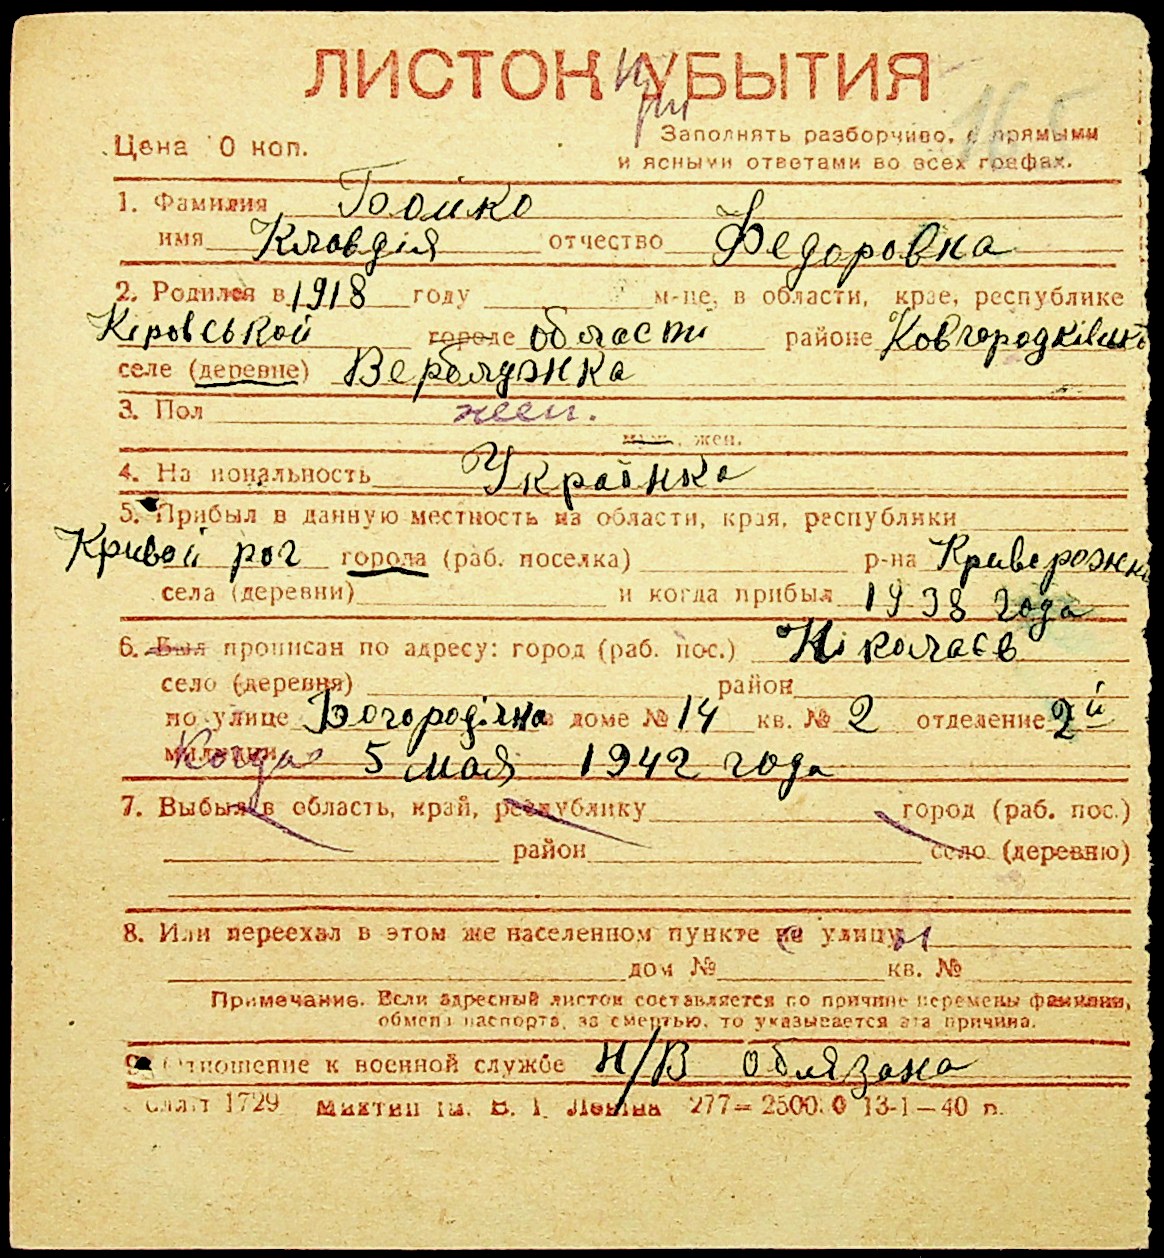 ЛИСТОК УБЫТИЯ
При
165
Цена 10 коп.
Заполнять разборчиво, с прямыми
и ясными ответами во всех графах.
1. Фамилия Бойко
имя Клавдія отчество Федоровна
2. Родился в 1918 году м-це, в области, крае, республике
Кіровськой городе області районе Ковгородківськ
селе (деревне) Верблюжка
3. Пол жен.
муж., жен.
4. Национальность Українка
5. Прибыл в данную местность из области, края, республики
Кривой рог города (раб. поселка) р-на Криворожск
села (деревни) и когда прибыл 1938 года
6. Был прописан по адресу: город (раб. пос.) Ніколаєв
село (деревня) район
по улице Богородічна доме № 14 кв. № 2 отделение 2й
милиции Когда 5 мая 1942 года
7. Выбыл в область, край, республику город (раб. пос.)
район село (деревню)
8. Или переехал в этом же населенном пункте на улицу
дом № кв. №
Примечание. Если адресный листок составляется по причине перемены фамилии,
обмена паспорта, за смертью, то указывается эта причина.
9. Отношение к военной службе Н/В обязана
1729 им. Леніна 277—2500.0 13-1—40 р.